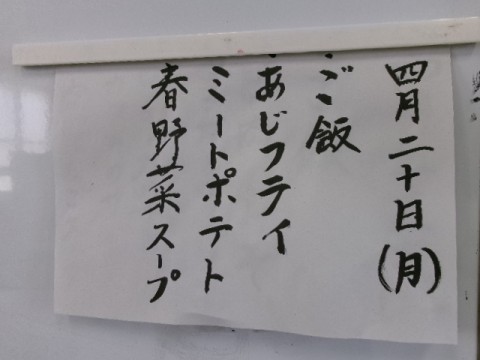 四月二十日(月)
・ご飯
・あじフライ
ミートポテト
春野菜スープ